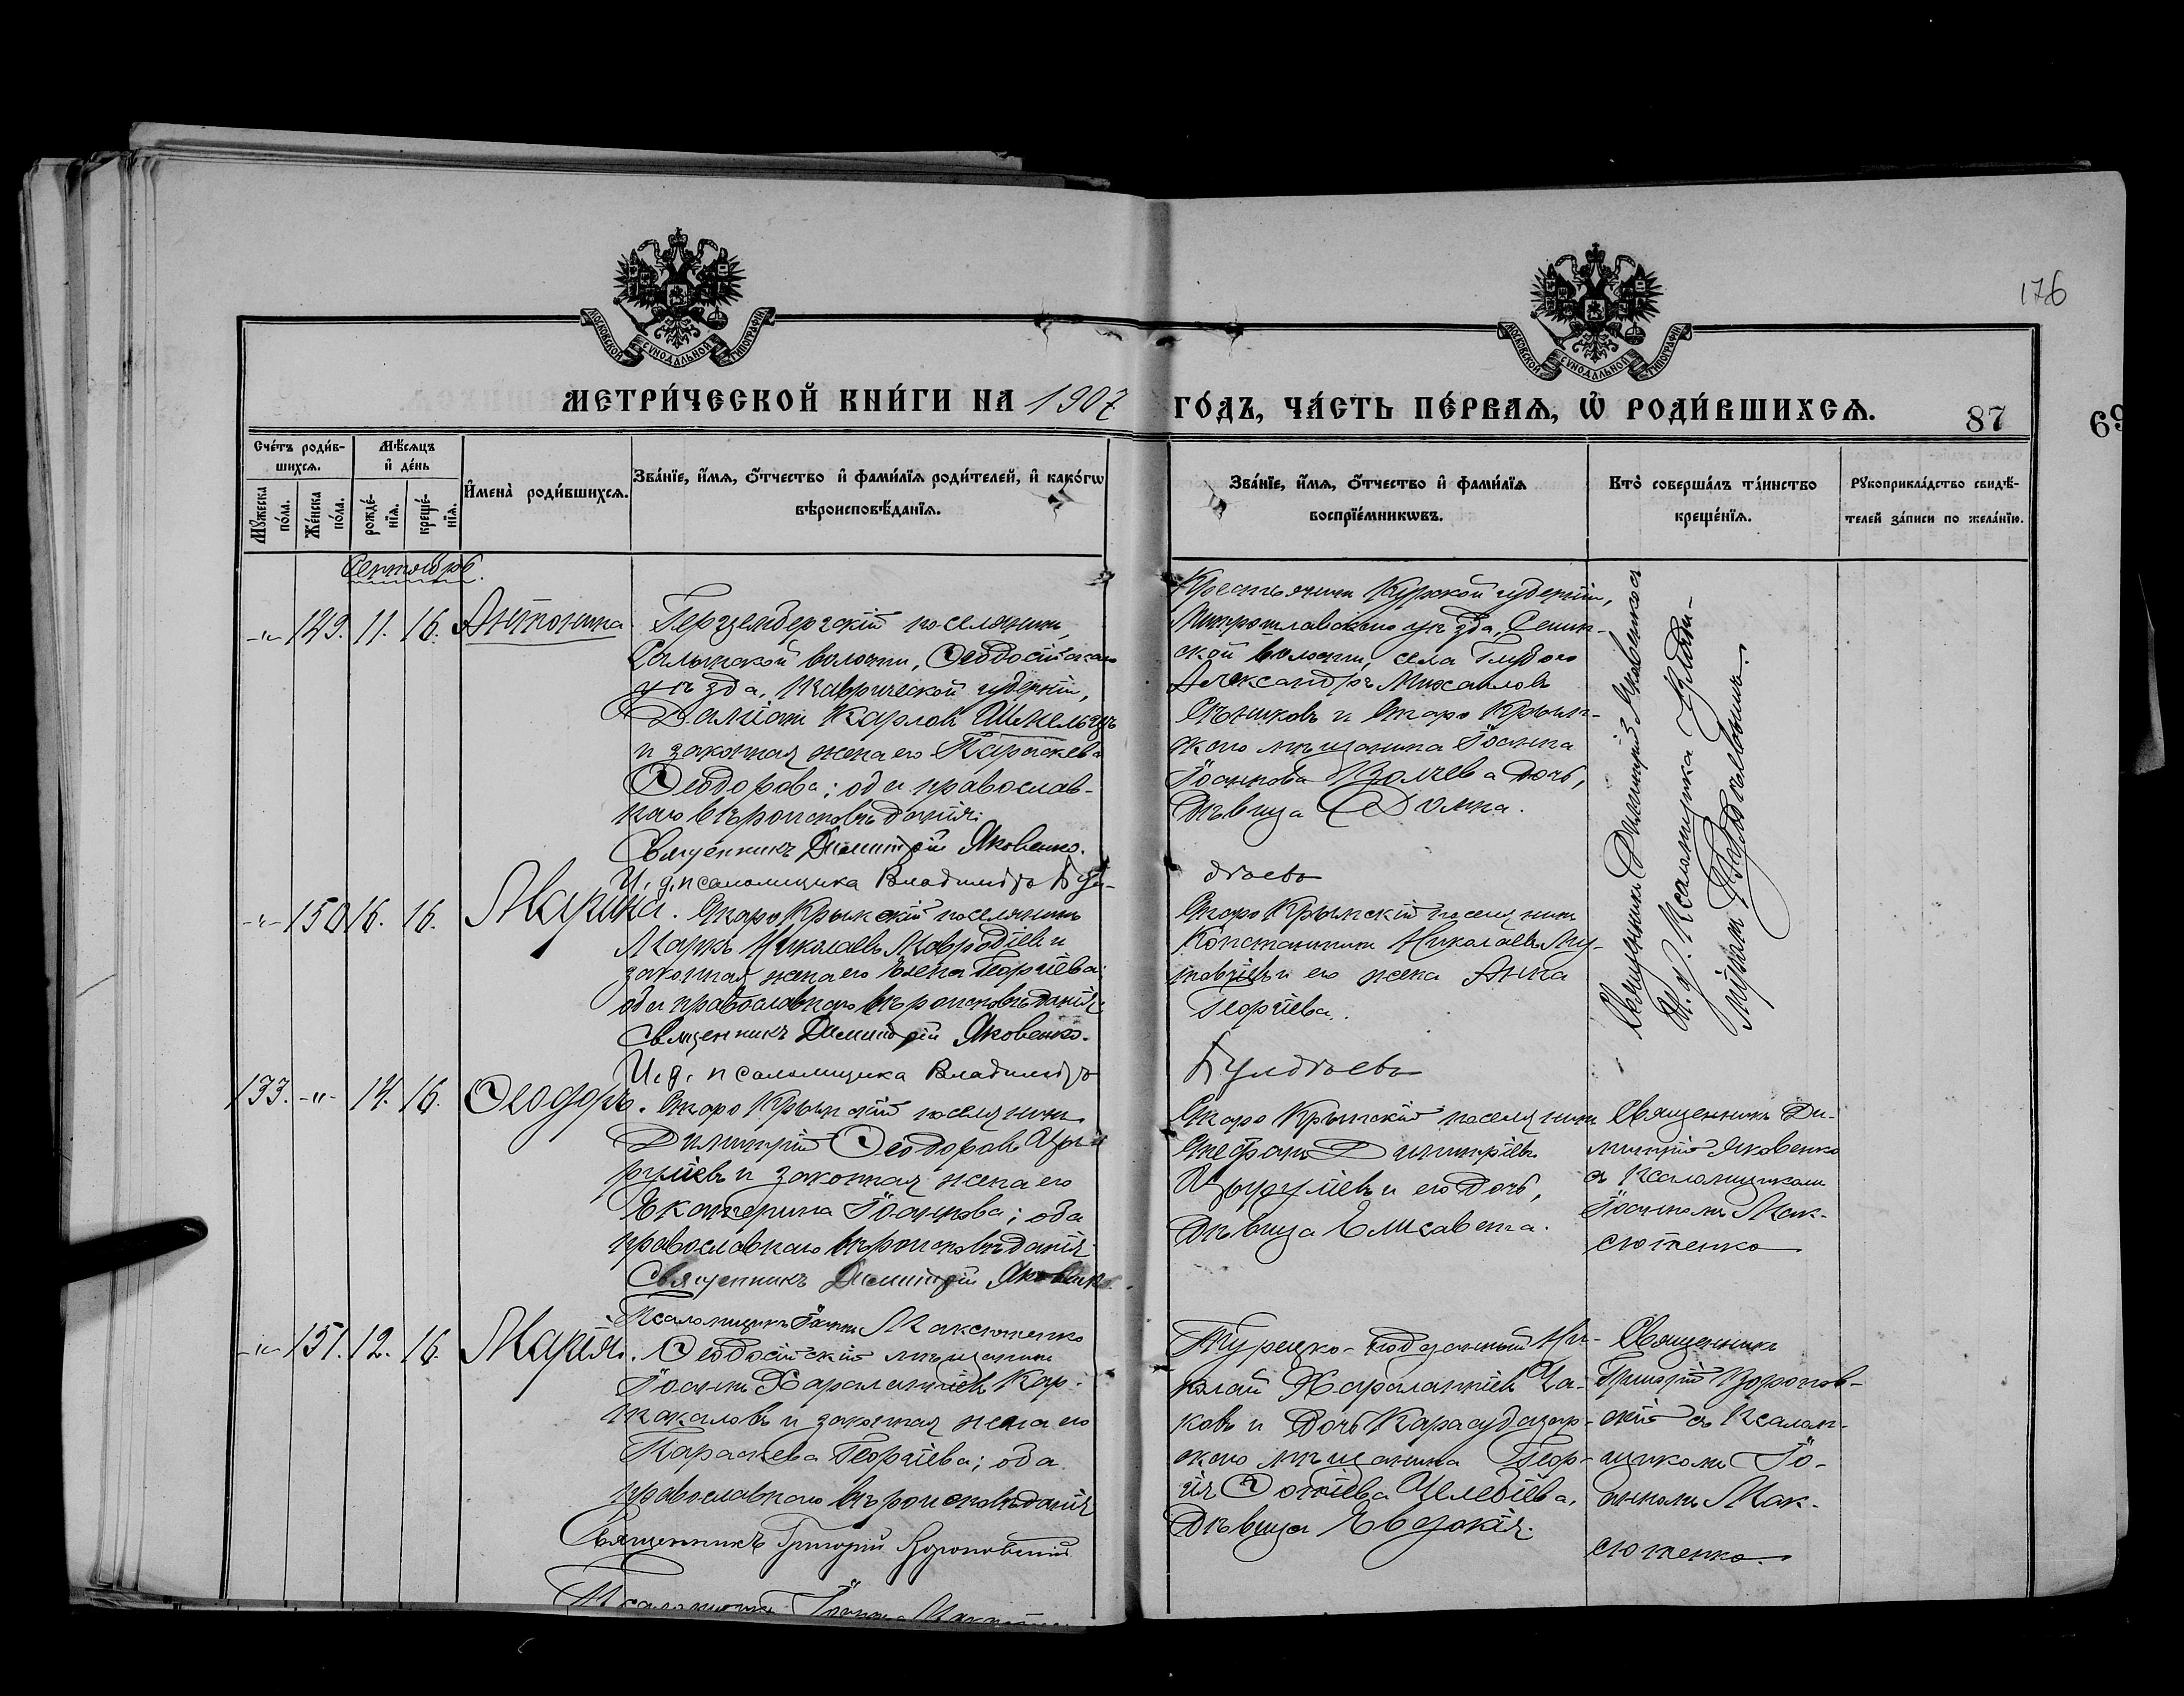 176
МОСКОВСКОЙ СУНОДАЛЬНОЙ ТИПОГРАФІИ
МОСКОВСКОЙ СУНОДАЛЬНОЙ ТИПОГРАФІИ
МЕТРИ́ЧЕСКОЙ КНИ́ГИ НА 1907
ГО́ДЪ, ЧА́СТЬ ПЕ́РВАЯ, Ѡ РОДИ́ВШИХСЯ.
87
69
Сче́тъ роди́в-
шихся.
Мѣ́сяцъ
и де́нь
Му́жеска
по́ла.
Же́нска
по́ла.
рожде́-
нія.
креще́-
нія.
Имена̀ роди́вшихся.
Зва́ніе, и́мя, о́тчество и фами́лія роди́телей, и како́гѡ
вѣроисповѣ́данія.
Зва́ніе, и́мя, о́тчество и фами́лія
воспріе́мникѡвъ.
Кто̀ соверша́лъ та́инство
креще́нія.
Рукоприкла́дство свидѣ́-
телей за́писи по жела́нію.
Сентябрь.
-"- 149. 11. 16. Антонина
Герценбергскій поселянинъ
волости, Ѳеодосійскаго
уѣзда, Таврической губерніи,
Даміанъ Карловъ
и законная жена его Параскева
Ѳеодорова; оба православ-
наго вѣроисповѣданія.
Священникъ Димитрій Яковенко.
И. д. псаломщика Владиміръ
Крестьянинъ Курской губерніи,
уѣзда,
ской волости, села
Александръ Михаиловъ
и Старо Крым-
скаго мѣщанина Іоанна
Іоаннова дочь,
дѣвица Домна.
Священникъ Димитрій Яковенко съ
И. д. псаломщика
-"- 150 16. 16. Марина.
Старо Крымскій поселянинъ
Маркъ Николаевъ Мавродіевъ и
законная жена его Елена Георгіева;
оба православнаго вѣроисповѣданія.
Священникъ Димитрій Яковенко.
И. д. псаломщика Владиміръ
Старо Крымскій поселянинъ
Константинъ Николаевъ
и его жена Анна
Георгіева.
133. -"- 14. 16. Ѳеодоръ.
Старо Крымскій поселянинъ
Димитрій Ѳеодоровъ
и законная жена его
Екатерина Іоаннова; оба
православнаго вѣроисповѣданія.
Священникъ Димитрій Яковенко.
Псаломщикъ Іоаннъ Максютенко
Старо Крымскій поселянинъ
Стефанъ Димитріевъ
и его дочь,
дѣвица Елисавета.
Священникъ Ди-
митрій Яковенко
съ псаломщикомъ
Іоанномъ Мак-
сютенко
-"- 151. 12. 16. Марія.
Ѳеодосійскій мѣщанинъ
Іоаннъ Харалампіевъ Кар-
и законная жена его
Параскева Георгіева; оба
православнаго вѣроисповѣданія
Священникъ Григорій
Псаломщикъ Іоаннъ
Турецко-подданный Ни-
колай Харалампіевъ Ча-
ковъ и дочь Карасубазар-
скаго мѣщанина Геор-
гія Челебіева,
дѣвица Евдокія.
Священникъ
Григорій
съ псалом-
щикомъ Іо-
анномъ Мак-
сютенко.